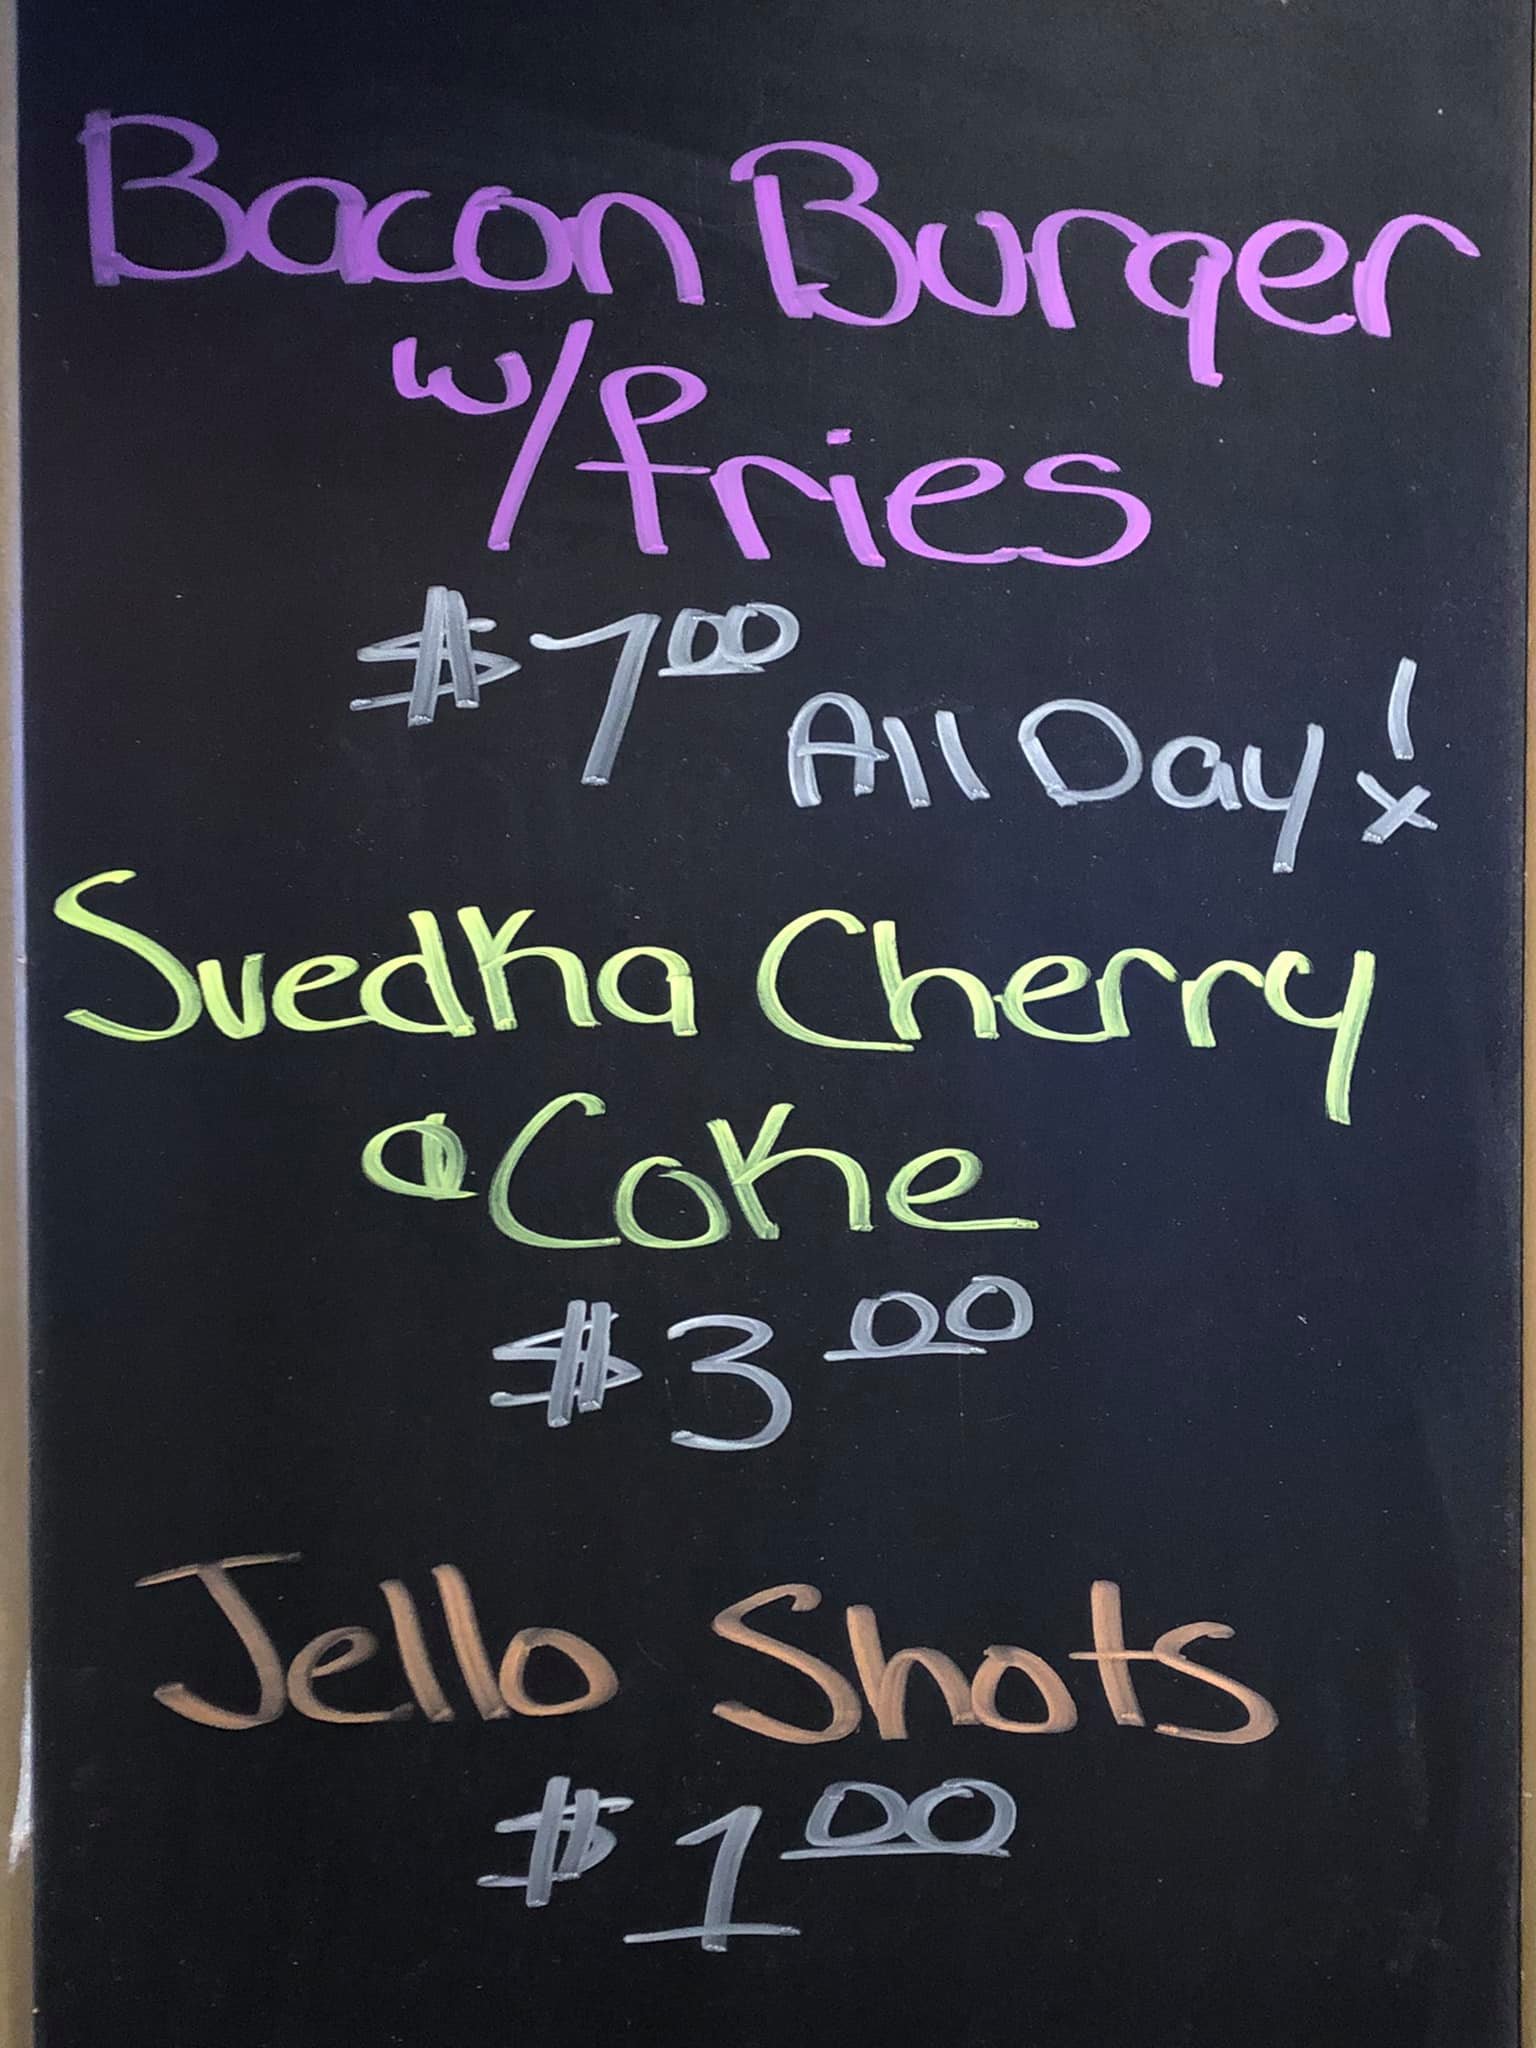 Bacon Burger
w/fries
$7.00 All Day!
Svedka Cherry
& Coke
$3.00
Jello Shots
$1.00